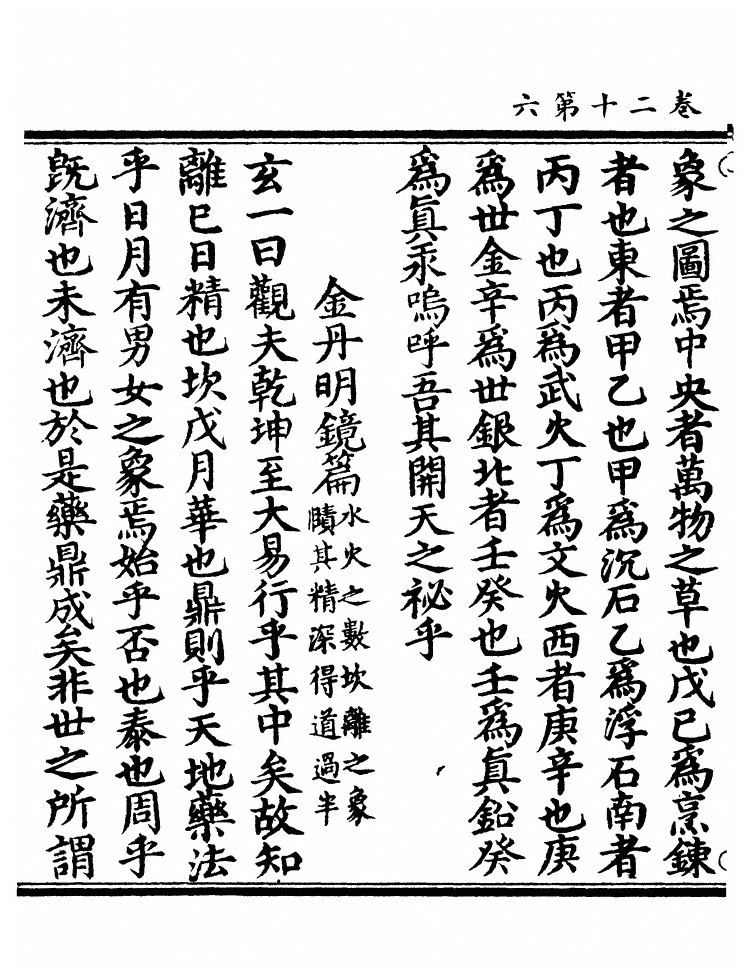 卷二十第六
象之圖焉中央者萬物之草也戊已爲烹鍊
者也東者甲乙也甲爲沉石乙爲浮石南者
丙丁也丙爲武火丁爲文火西者庚辛也庚
爲世金辛爲世銀北者壬癸也壬爲眞鉛癸
爲眞汞嗚呼吾其開天之祕乎
金丹明鏡篇水火之數坎離之象
賾其精深得道過半
玄一曰觀夫乾坤至大易行乎其中矣故知
離巳日精也坎戊月華也鼎則乎天地藥法
乎日月有男女之象焉始乎否也泰也周乎
旣濟也未濟也於是藥鼎成矣非世之所謂